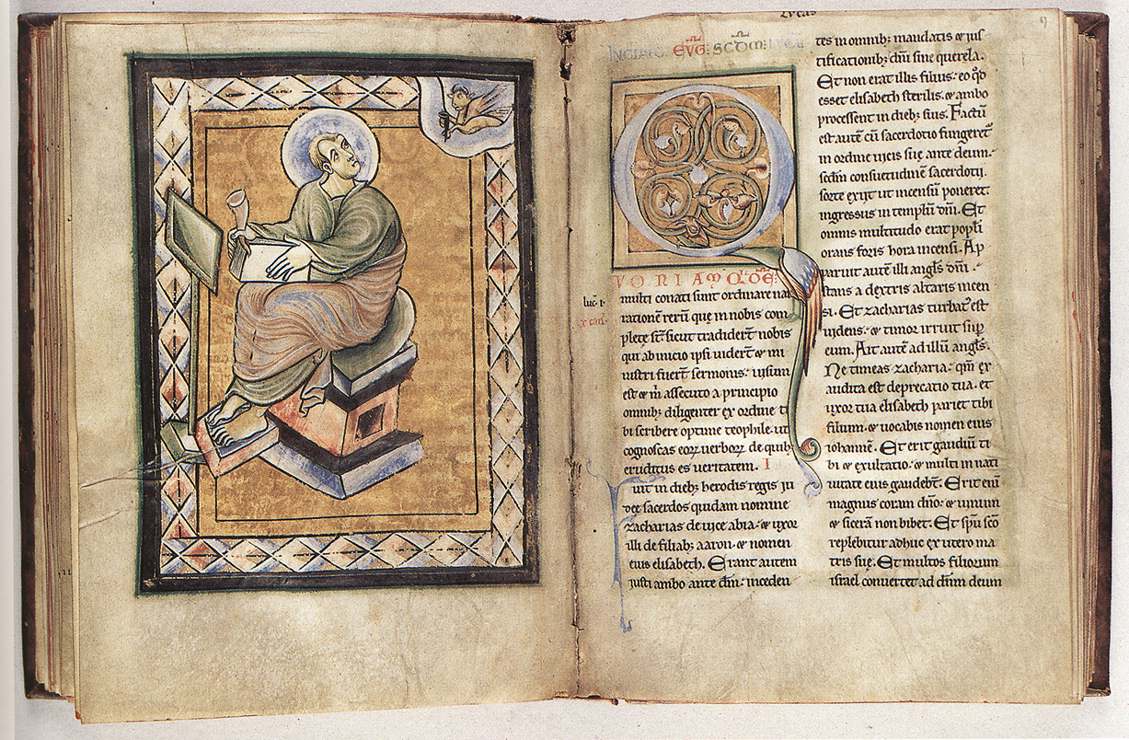 Lucas
9
INCIPIT EVG SCDM LUCA
Q
VONIAM QIDE
luc. 1.
multi conati sunt ordinare nar
rationē rerū que in nobis com
plete sc̄ sicut tradiderūt nobis
qui ab inicio ipsi viderūt & mi
nistri fuerūt sermonis: visum
est & m̄ assecuto a principio
omnibꝫ diligenter ex ordine ti
bi scribere optime teophile. ut
cognoscas eoꝝ verboꝝ de quibꝫ
eruditus es veritatem.
Fuit in diebꝫ herodis regis iu
dee sacerdos quidam nomine
zacharias de vice abia: & uxor
illi de filiabꝫ aaron. & nomen
eius elisabeth. Erant autem
iusti ambo ante dm̄. inceden
tes in omnibꝫ mandatis & ius
tificationibꝫ dn̄i sine querela.
Et non erat illis filius: eo qd̄
esset elisabeth sterilis. & ambo
processent in diebꝫ suis. Factū
est autē cū sacerdotio fungeret᷑
in ordine vicis sue ante deum:
scdm̄ consuetudinē sacerdotij
sorte exijt ut incensū poneret:
ingressus in templū dn̄i. Et
omnis multitudo erat popli
orans foris hora incensi. Ap
paruit autē illi angls̄ dn̄i
stans a dextris altaris incen
si. Et zacharias turbat᷑ est
videns: & timor irruit sup̄
eum. Ait autē ad illū angls̄.
Ne timeas zacharia: qm̄ ex
audita est deprecatio tua. et
uxor tua elisabeth pariet tibi
filium. & vocabis nomen eius
iohannē. Et erit gaudiū ti
bi & exultatio: & multi in nati
vitate eius gaudebt̄. Erit enī
magnus coram dn̄o: & vinum
& sicerā non bibet. Et spū sc̄o
replebitur adhuc ex utero ma
tris sue. Et multos filiorum
israel convertet ad dn̄m deum